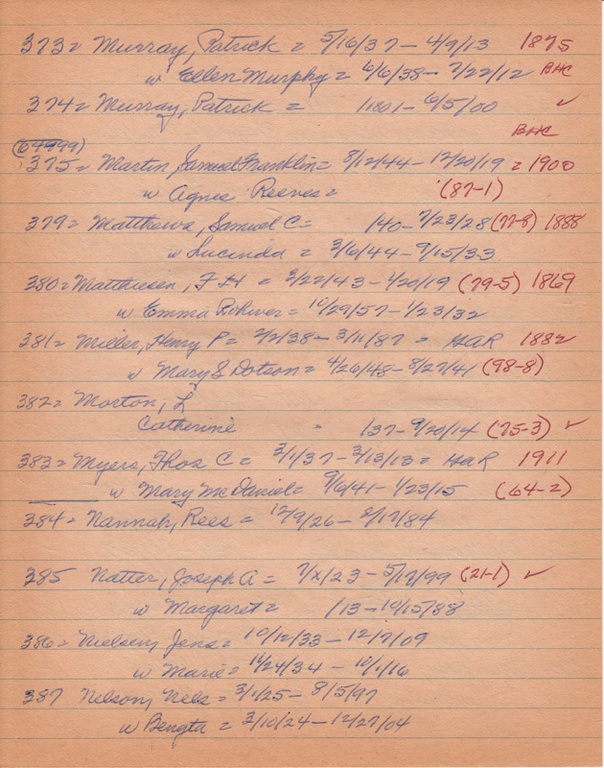 373 = Murray, Patrick = 5/16/37 - 4/9/13 1875
w Ellen Murphy = 6/6/38 - 7/22/12 BHC
374 = Murray, Patrick = - 6/5/00 ✓
BHC
375 = Martin, Samuel Franklin = 8/12/44 - 12/20/19 = 1900
w Agnes Reeves = (87-1)
379 = Matthews, Samuel C = /40 - 7/23/28 (77-8) 1888
w Lucinda = 3/6/44 - 9/15/33
380 = Matthiesen, F H = 3/22/43 - 1/20/19 (79-5) 1869
w Emma Rohwer = 10/29/57 - 1/23/32
381 = Miller, Henry P = 2/2/38 - 3/11/87 = HAR 1882
w Mary S Dotson = 4/26/48 - 8/27/41 (98-8)
382 = Morton, L
Catherine " /37 - 9/20/14 (75-3) ✓
383 = Myers, Thos C = 3/1/37 - 3/13/13 = HAR 1911
w Mary McDaniel = 9/6/41 - 1/23/15 (64-2)
384 = Hannah, Rees = 12/9/26 - 2/17/84
385 Natter, Joseph A = 7/x/23 - 5/17/99 (21-1) ✓
w Margaret = /13 - 10/15/88
386 = Nielsen, Jens = 10/12/33 - 12/7/09
w Marie = 11/24/34 - 10/1/16
387 Nelson, Nels = 3/1/25 - 8/5/97
w Bengta = 3/10/24 - 12/27/04